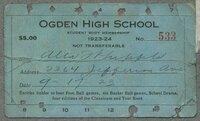 OGDEN HIGH SCHOOL
STUDENT BODY MEMBERSHIP
$5.00 1923-24 No. 533
NOT TRANSFERABLE
2364 Jefferson Ave
9-17-23
Entitles holder to four Foot Ball games, six Basket Ball games, School Drama,
four editions of the Classicum and Year Book